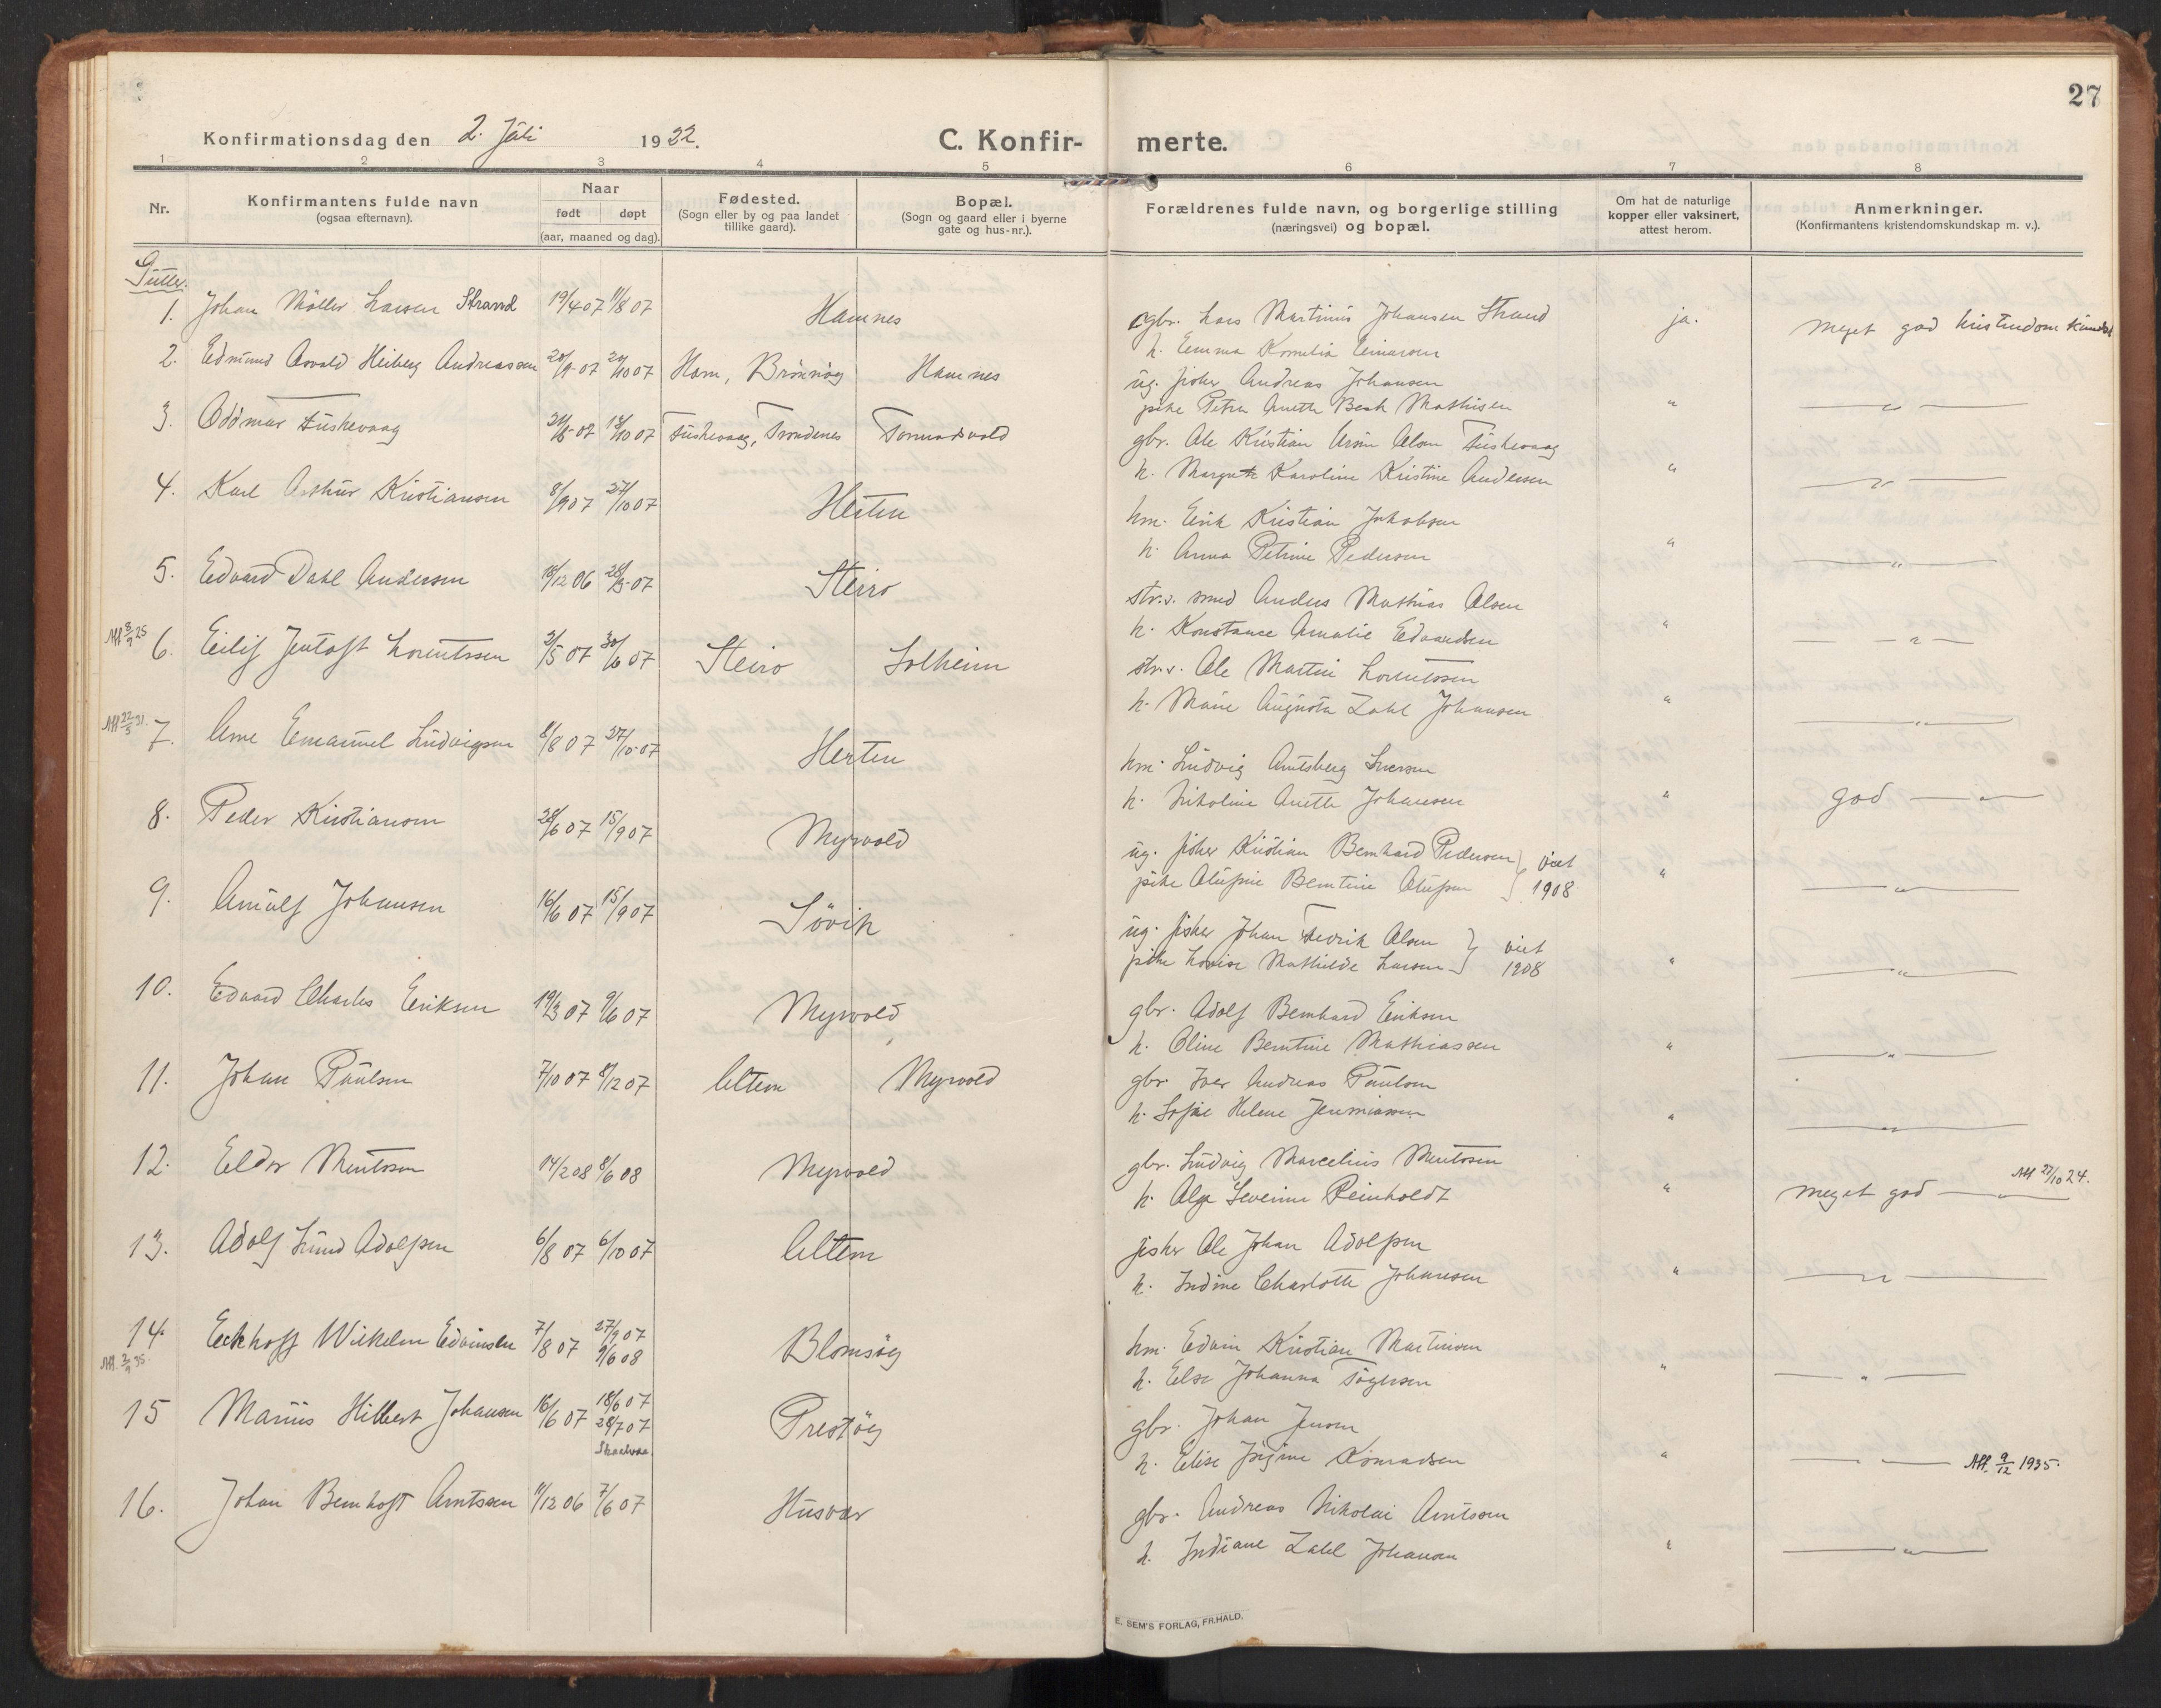 27
Konfirmationsdag den 2. Juli 1922.
C. Konfirmerte.
1 2 3 4 5 6 7 8
Nr.
Konfirmantens fulde navn
(ogsaa efternavn).
Naar
født døpt
(aar, maaned og dag).
Fødested.
(Sogn eller by og paa landet
tillike gaard).
Bopæl.
(Sogn og gaard eller i byerne
gate og hus-nr.).
Forældrenes fulde navn, og borgerlige stilling
(næringsvei) og bopæl.
Om hat de naturlige
kopper eller vaksinert,
attest herom.
Anmerkninger.
(Konfirmantens kristendomskundskap m. v.).
Gutter.
1. Johan Møller Larsen Strand 19/4 07 11/8 07 Hamnes
gbr. Lars Martinus Johansen Strand
h. Emma Kornelia Einarsen
ja. meget god kristendomskundsk
2. Edmund Osvald Heiberg Andreassen 20/9 07 20/10 07 Horn, Brønnøy Hamnes
ug. fisker Andreas Johansen
pike Petra Anette Beck Mathisen
" — " —
3. Oddmar Fuskevaag 21/5 07 13/10 07 Fuskevaag, Trondenes Tormodsvold
gbr. Ole Kristian Ursin Olsen Fuskevaag
h. Margrete Karoline Kristine Andersen
" — " —
4. Karl Arthur Kristiansen 8/9 07 27/10 07 Herten
hm. Eirik Kristian Jakobsen
h. Anna Petrine Pedersen
" — " —
5. Edvard Dahl Andersen 18/12 06 28/3 07 Steiro
str.s. smed Anders Mathias Olsen
h. Konstance Amalie Edvardsen
" — " —
Att 8/9 25
6. Eilif Jentoft Lorentssen 3/5 07 30/6 07 Steiro Solheim
str.s. Ole Martin Lorentssen
h. Marie Augusta Zahl Johansen
" — " —
Att 22/5 31.
7. Arne Emanuel Ludvigsen 8/8 07 27/10 07 Herten
hm. Ludvig Amtsberg Iversen
h. Nikoline Anette Johansen
" god — " —
8. Peder Kristiansen 28/6 07 15/9 07 Myrvold
ug. fisker Kristian Bernhard Pedersen } viet
pike Olufine Berntine Olufsen } 1908
" — " —
9. Arnulf Johansen 16/6 07 15/9 07 Søvik
ug. fisker Johan Fedrik Olsen } viet
pike Lovise Mathilde Larsen } 1908
" — " —
10. Edvard Charles Eriksen 19/3 07 9/6 07 Myrvold
gbr. Adolf Bernhard Eriksen
h. Oline Berntine Mathiassen
" — " —
11. Johan Paulsen 7/10 07 8/12 07 Altern Myrvold
gbr. Iver Andreas Paulsen
h. Sofie Helene Jeremiassen
" — " —
12. Eldor Mentzsen 14/2 08 8/6 08 Myrvold
gbr. Ludvig Marcelius Mentzsen
h. Olga Severine Reinholdt
" meget god — " — Att 27/10 24.
13. Adolf Lund Adolfsen 6/8 07 6/10 07 Altern
fisker Ole Johan Adolfsen
h. Indine Charlotte Johansen
" — " —
14. Eckhoff Wilhelm Edvinsen 7/8 07 27/9 07 9/6 08 Blomsøy
Att. 2/9 35.
hm. Edvin Kristian Martinsen
h. Else Johanna Tøgersen
" — " —
15 Marius Hilbert Johansen 16/6 07 18/6 07 28/7 07 Prestøy
gbr. Johan Jensen
h. Elise Konradsen
" — — Att. 9/12 1935.
16. Johan Bernhoft Arntssen 11/12 06 7/6 07 Husvær
gbr. Andreas Nikolai Arntssen
h. Indiane Zahl Johansen
" — " —
E. SEM'S FORLAG, FR.HALD.